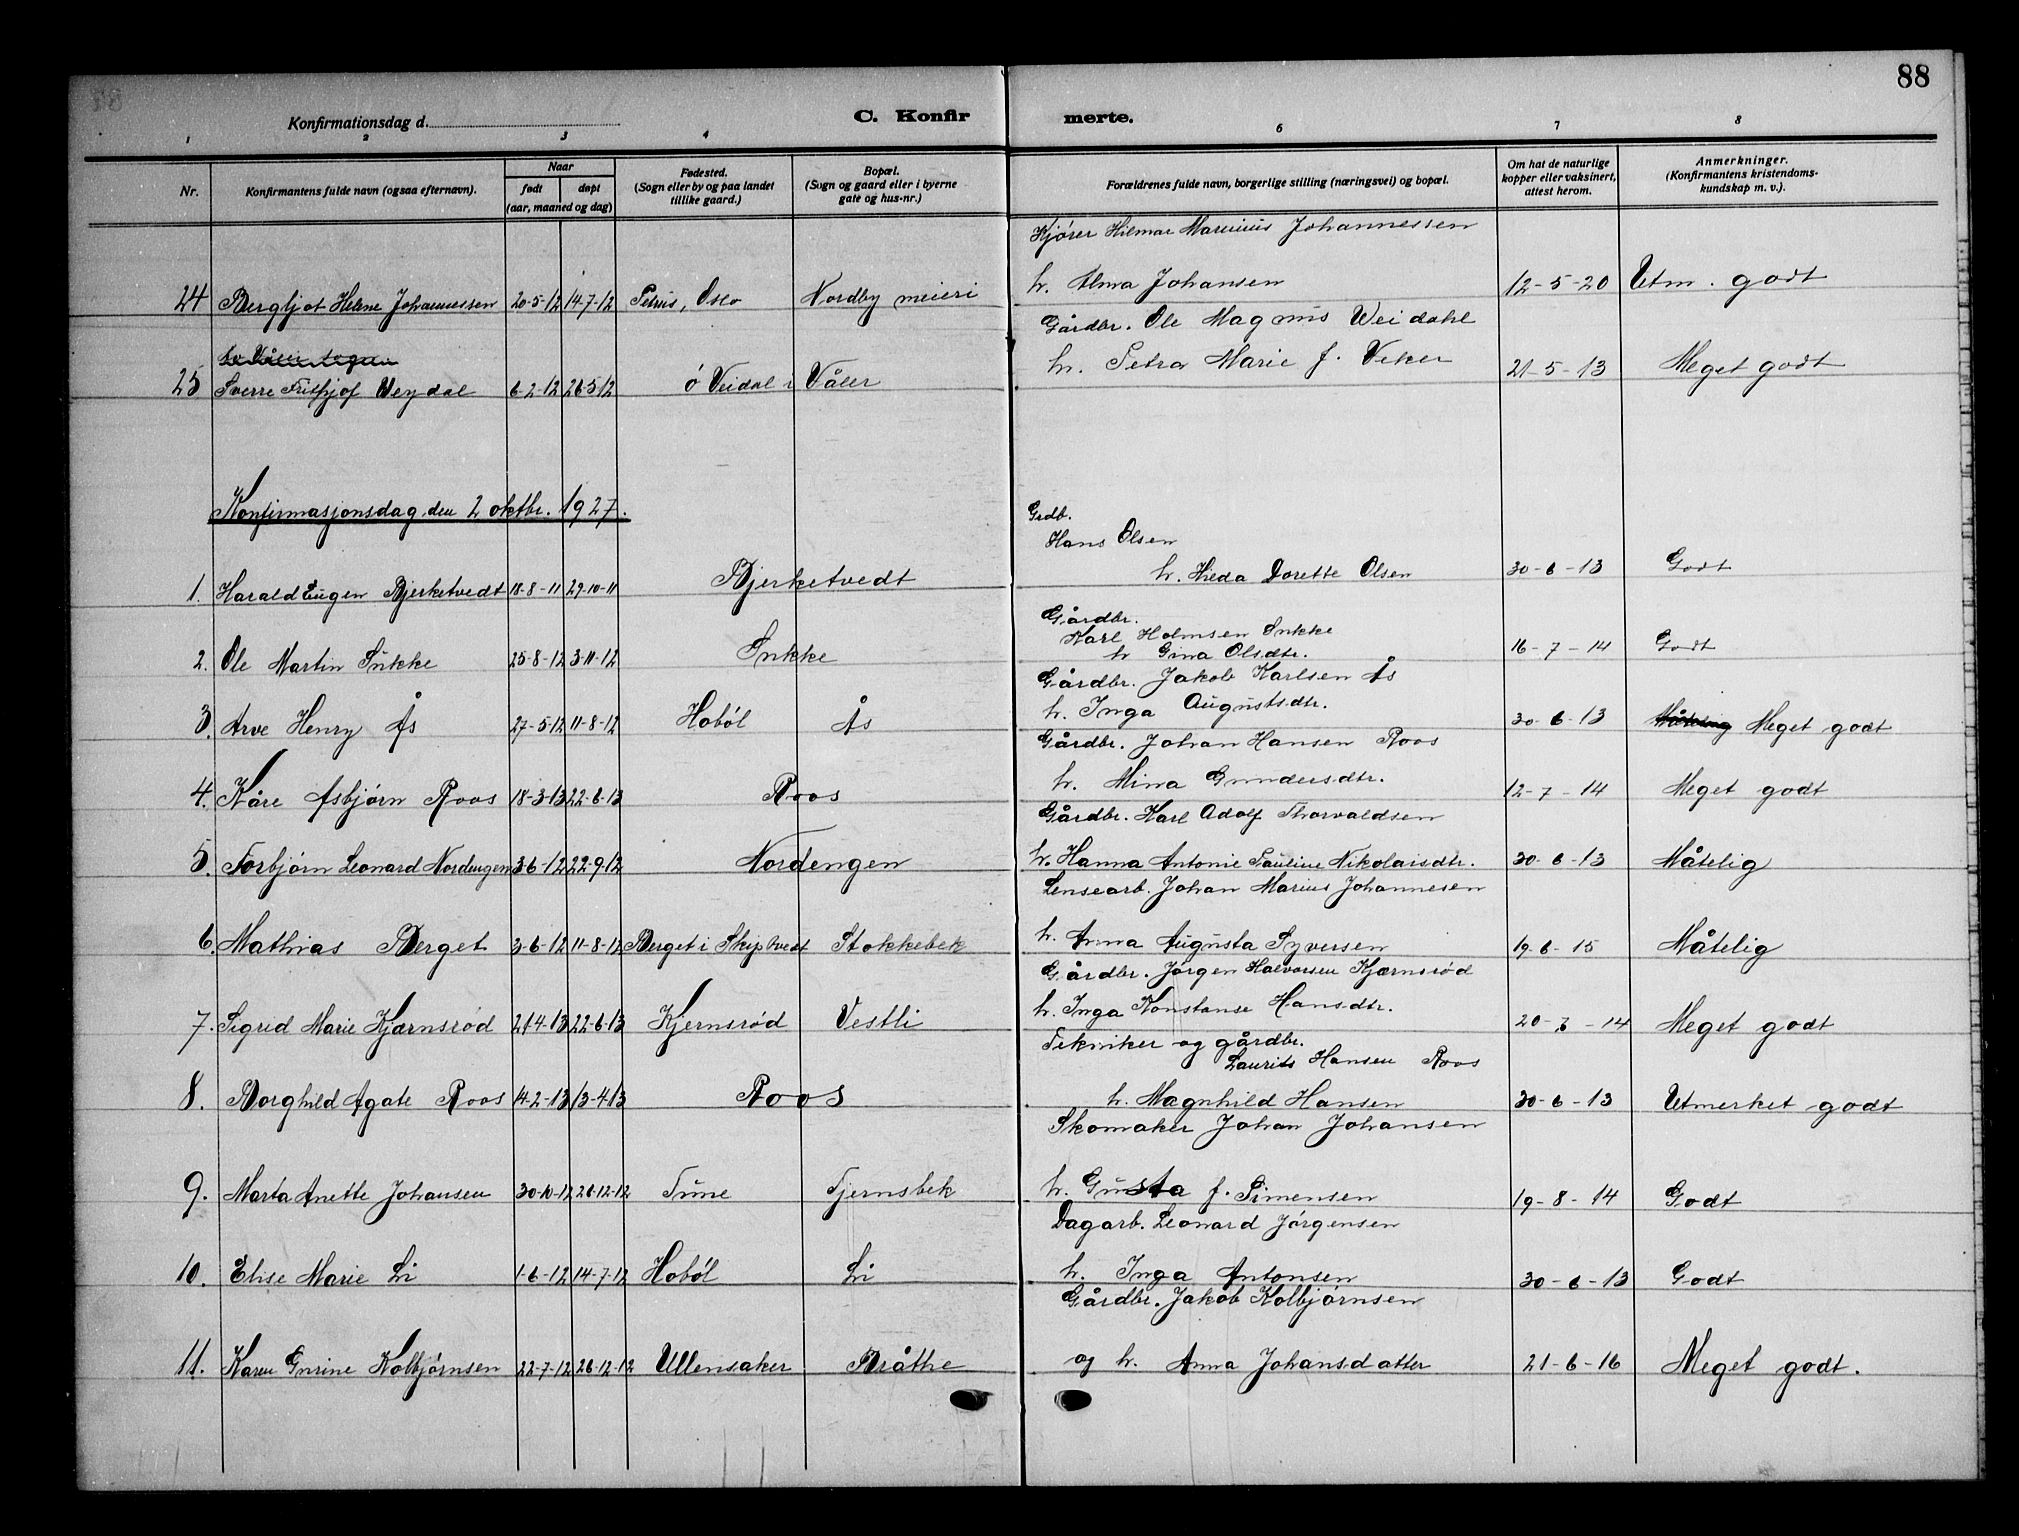 88
Konfirmationsdag d.
C. Konfir merte.
1 2 3 4 6 7 8
Nr.
Konfirmantens fulde navn (ogsaa efternavn).
Naar
født døpt
(aar, maaned og dag)
Fødested.
(Sogn eller by og paa landet
tillike gaard.)
Bopæl.
(Sogn og gaard eller i byerne
gate og hus-nr.)
Forældrenes fulde navn, borgerlige stilling (næringsvei) og bopæl.
Om hat de naturlige
kopper eller vaksinert,
attest herom.
Anmerkninger.
(Konfirmantens kristendoms-
kundskap m. v.).
Kjører Hilmar Marinius Johannessen
24 Bergljot Helene Johannessen 20-5-12 14-7-12 Petrus, Oslo Nordby meieri h. Alma Johansen 12-5-20 Utm. godt
Gårdbr. Ole Magnus Weidahl
25 Sverre Fritjof Veydal 6-2-12 26-5-12 ø Veidal i Våler h. Petra Marie f. Veker 21-5-13 Meget godt
Konfirmasjonsdag den 2 oktbr. 1927.
Grdb.
Hans Olsen
1. Harald Eugen Bjerketvedt 18-8-11 29-10-11 Bjerketvedt h. Hilda Dorette Olsen 30-6-13 Godt
Gårdbr.
Karl Holmsen Snkke
2. Ole Martin Sukke 25-8-12 3-11-12 Snkke h Gina Olsdtr. 16-7-14 Godt
Gårdbr. Jakob Karlsen Ås
3. Arve Henry Ås 27-5-12 11-8-12 Hobøl Ås h. Inga Augustsdtr. 30-6-13 Måtelig Meget godt
Gårdbr. Johan Hansen Roos
4. Kåre Asbjørn Roos 18-3-13 22-6-13 Roos h. Mina Gundersdtr. 12-7-14 Meget godt
Gårdbr. Karl Adolf Thorvaldsen
5. Torbjørn Leonard Nordengen 3-6-12 22-9-12 Nordengen h. Hanna Antonie Pauline Nikolaisdtr. 30-6-13 Måtelig
Lensearb. Johan Marius Johannesen
6. Mathias Berget 3-6-12 11-8-12 Berget i Skiptvedt Stokkebek h. Anna Augusta Syversen 19-6-15 Måtelig
Gårdbr. Jørgen Halvorsen Kjærnsrød
7. Sigrid Marie Kjærnsrød 21-4-13 22-6-13 Kjernsrød Vestli h. Inga Konstanse Hansdtr. 20-6-14 Meget godt
Tekniker og gårdbr.
Laurits Hansen Roos
8. Borghild Agate Roos 14-2-13 13-4-13 Roos h. Magnhild Hansen 30-6-13 Utmerket godt
Skomaker Johan Johansen
9. Marta Anette Johansen 30-10-12 26-12-12 Tune Tjernsbek h. Gusta f. Simensen 19-8-14 Godt
Dagarb. Leonard Jørgensen
10. Elise Marie Li 1-6-12 14-7-12 Hobøl Li h. Inga Antonsen 30-6-13 Godt
Gårdbr. Jakob Kolbjørnsen
11. Karen Gurine Kolbjørnsen 22-7-12 26-12-12 Ullensaker Bråthe og h. Anna Johansdatter 21-6-16 Meget godt.